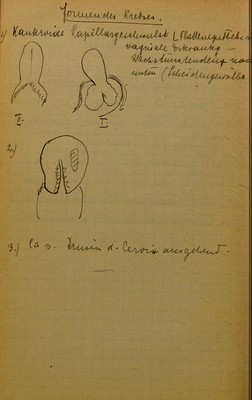 Formen des Krebses.
1) Kankroide Papillargeschwulst (Plattenepithel
vaginale Erkrankg –
Wachstumstendenz nach
unten (Scheidengewölbe
II.
I.
2.)
3.) Ca v. Drüsen d. Cervix ausgehend.